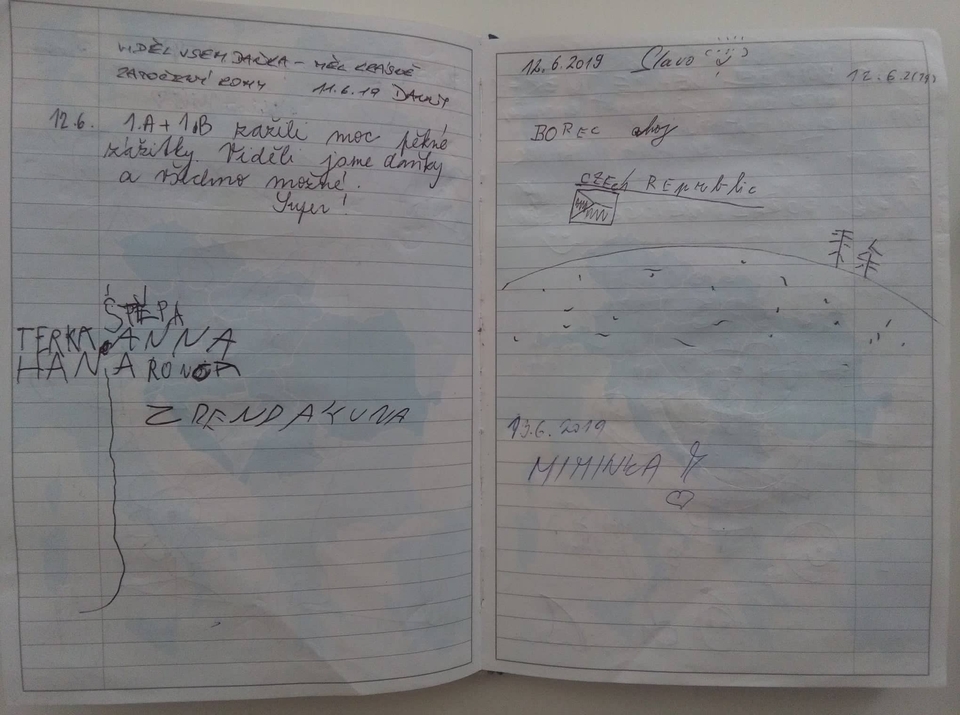 VIDĚL JSEM DAŇKA - MĚL KRÁSNĚ
ZATOČENÝ ROHY 11.6.19
12.6. 1.A + 1.B zažili moc pěkné
zážitky. Viděli jsme daňky
a všechno možné.
Super!
ŠTĚPA
TERKA ANNA
HANA
12.6.2019 Slavo
12.6.2019
BOREC ahoj
CZECH REPublic
13.6.2019
MIMINKA